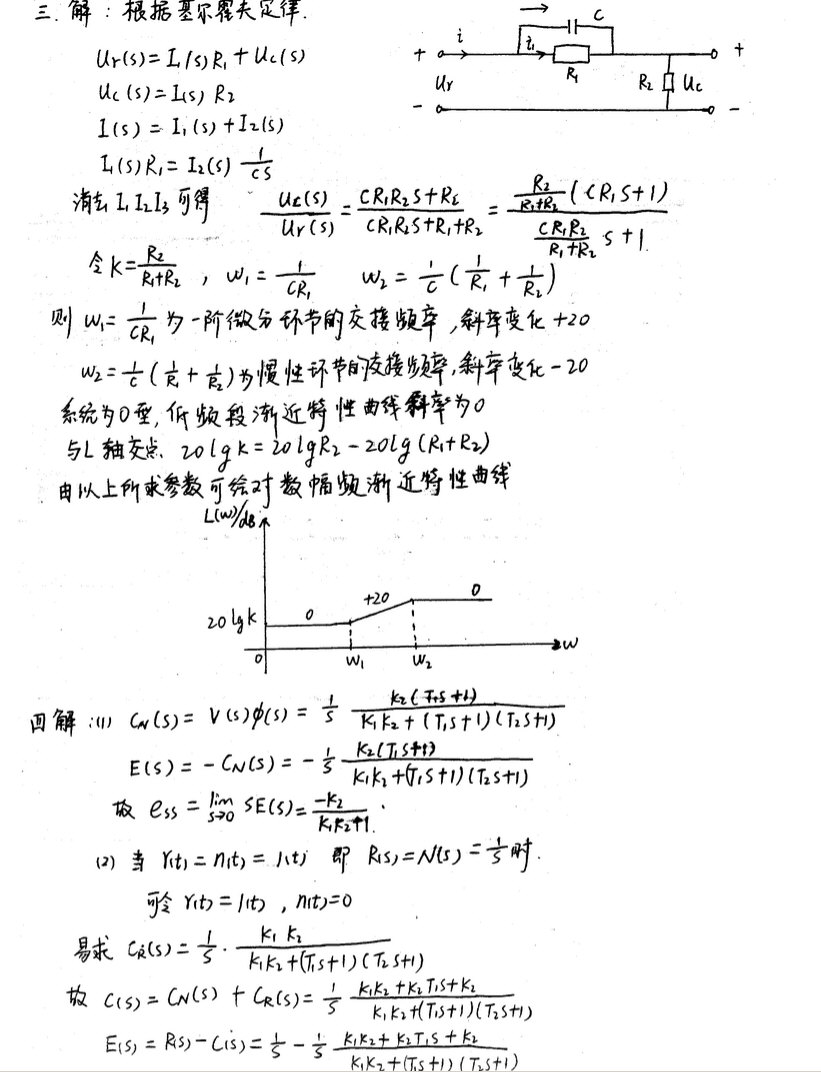 三. 解：根据基尔霍夫定律.
Ur(s)=I1(s)R1+Uc(s)
Uc(s)=I(s)R2
I(s)=I1(s)+I2(s)
I1(s)R1=I2(s) 1/cs
C
i
i1
R1
+
Ur
-
R2
Uc
+
-
消去I1 I2 I3可得 Uc(s)/Ur(s) = (CR1R2S+R2)/(CR1R2S+R1+R2) = (R2/(R1+R2) (CR1S+1))/(CR1R2/(R1+R2) S+1)
令K=R2/(R1+R2) , W1=1/CR1 W2=1/C(1/R1+1/R2)
则 W1=1/CR1 为一阶微分环节的交接频率,斜率变化+20
W2=1/C(1/R1+1/R2)为惯性环节的交接频率,斜率变化-20
系统为0型,低频段渐近特性曲线斜率为0
与L轴交点 20lgK=20lgR2-20lg(R1+R2)
由以上所求参数可绘对数幅频渐近特性曲线
L(w)/dB
20lgK 0 +20 0
0 W1 W2 W
四解:(1) CN(S)=V(S)φ(S)=1/S K2(T1S+1)/(K1K2+(T1S+1)(T2S+1))
E(S)=-CN(S)=-1/S K2(T1S+1)/(K1K2+(T1S+1)(T2S+1))
故 ess=lim s→0 SE(S)=-K2/(K1K2+1).
(2) 当 r(t)=n(t)=1(t) 即 R(S)=N(S)=1/S时.
可令 r(t)=1(t) , n(t)=0
易求 CR(S)=1/S · K1K2/(K1K2+(T1S+1)(T2S+1))
故 C(S)=CN(S)+CR(S)=1/S (K1K2+K2T1S+K2)/(K1K2+(T1S+1)(T2S+1))
E(S)=R(S)-C(S)=1/S-1/S (K1K2+K2T1S+K2)/(K1K2+(T1S+1)(T2S+1))